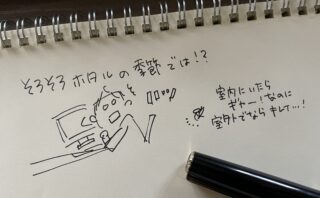 そろそろホタルの季節では!?
室内にいたら
ギャー!なのに
室外でなら キレイ…!